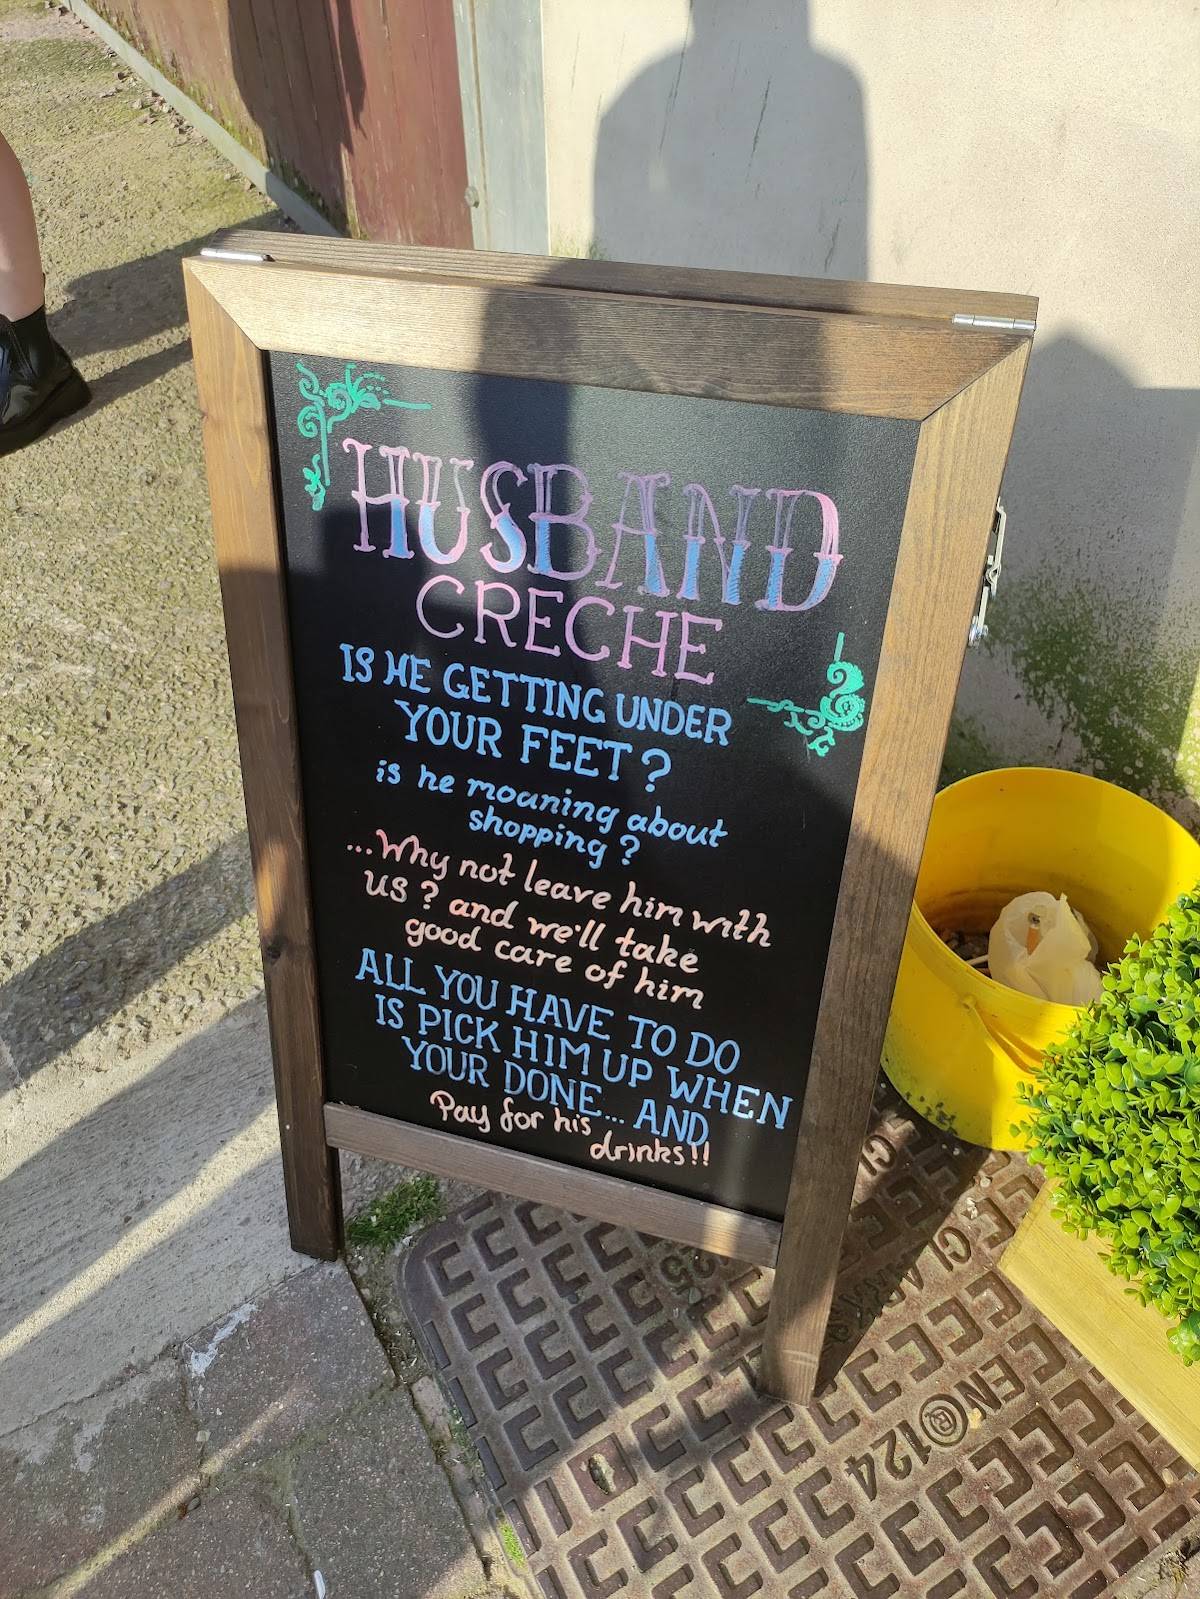 HUSBAND
CRECHE
IS HE GETTING UNDER
YOUR FEET?
is he moaning about
shopping?
...Why not leave him with
us? and we'll take
good care of him
ALL YOU HAVE TO DO
IS PICK HIM UP WHEN
YOUR DONE... AND
Pay for his
drinks!!
EN®124